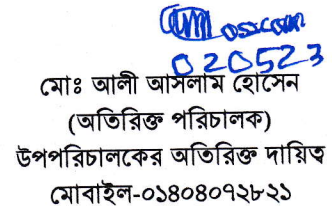 020523
মোঃ আলী আসলাম হোসেন
(অতিরিক্ত পরিচালক)
উপপরিচালকের অতিরিক্ত দায়িত্ব
মোবাইল-০১৪০৪০৭২৮২১